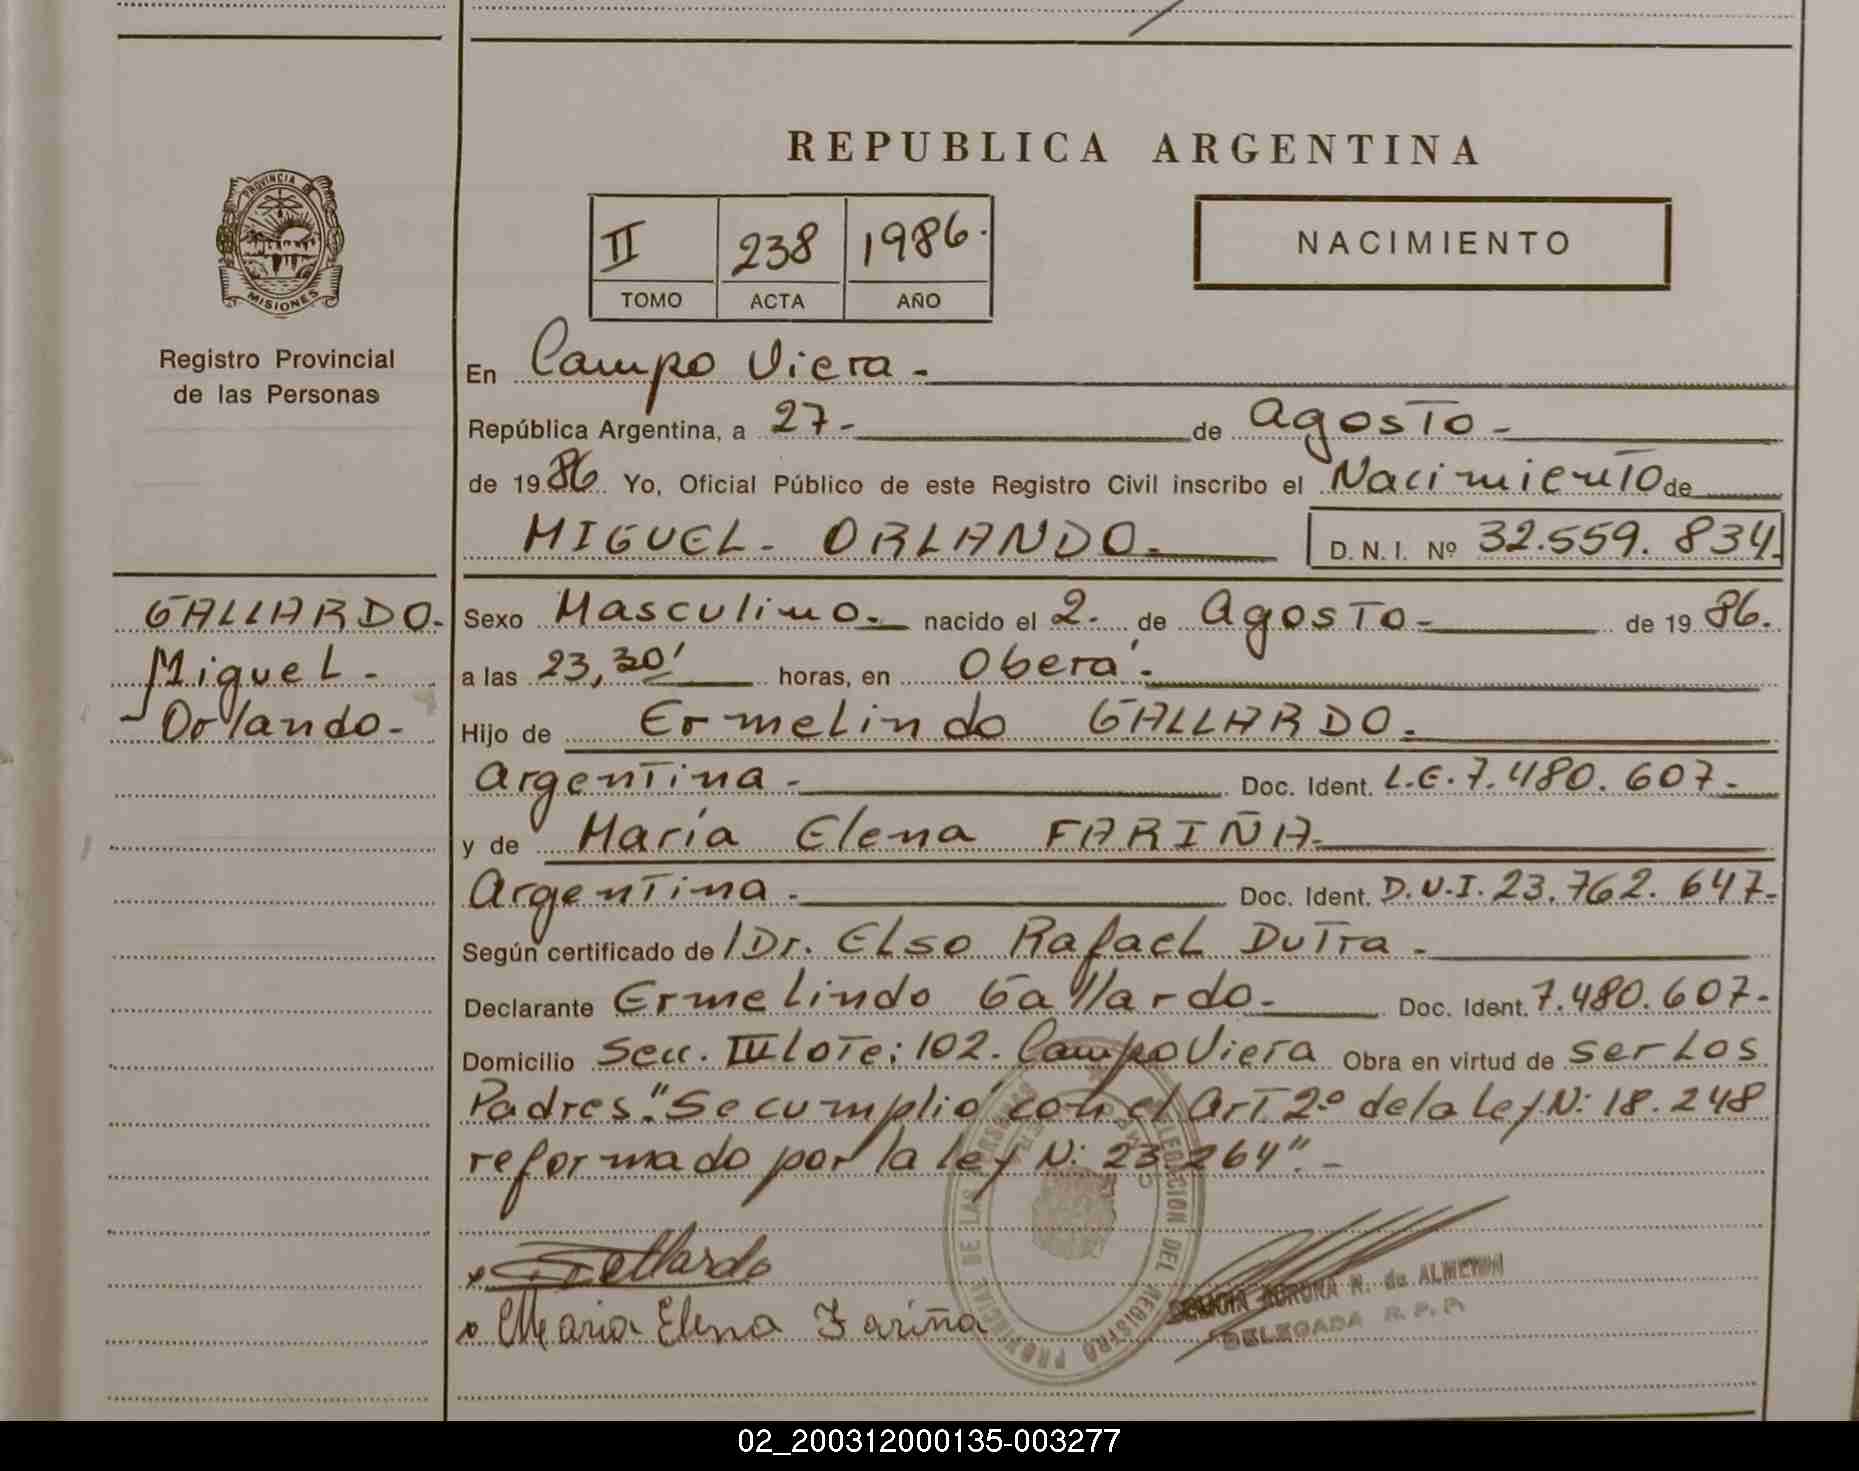 REPUBLICA ARGENTINA
PROVINCIA DE
MISIONES
Registro Provincial
de las Personas
II 238 1986.
TOMO ACTA AÑO
NACIMIENTO
En Campo Viera.
República Argentina, a 27- de Agosto-
de 1986 Yo, Oficial Público de este Registro Civil inscribo el Nacimiento de
MIGUEL- ORLANDO- D. N. I. Nº 32.559.834.
GALLARDO-
Miguel-
-Orlando-
Sexo Masculino.- nacido el 2. de Agosto- de 1986.
a las 23,30' horas, en Oberá.
Hijo de Ermelindo GALLARDO.
Argentina- Doc. Ident. L.E.7.480.607-
y de María Elena FARIÑA-
Argentina- Doc. Ident. D.N.I. 23.762.647-
Según certificado de /Dr. Elso Rafael Dutra-
Declarante Ermelindo Gallardo- Doc. Ident. 7.480.607-
Domicilio Secc. III lote: 102. Campo Viera Obra en virtud de ser los
Padres. "Se cumplió con el Art 2º de la Ley N: 18.248
reformado por la ley N: 23.264".-
x Gallardo
x Maria Elena Fariña
N. de ALMEIDA
DELEGADA R. P. P.
DELEGACION DEL REGISTRO PROVINCIAL DE LAS PERSONAS
02_200312000135-003277